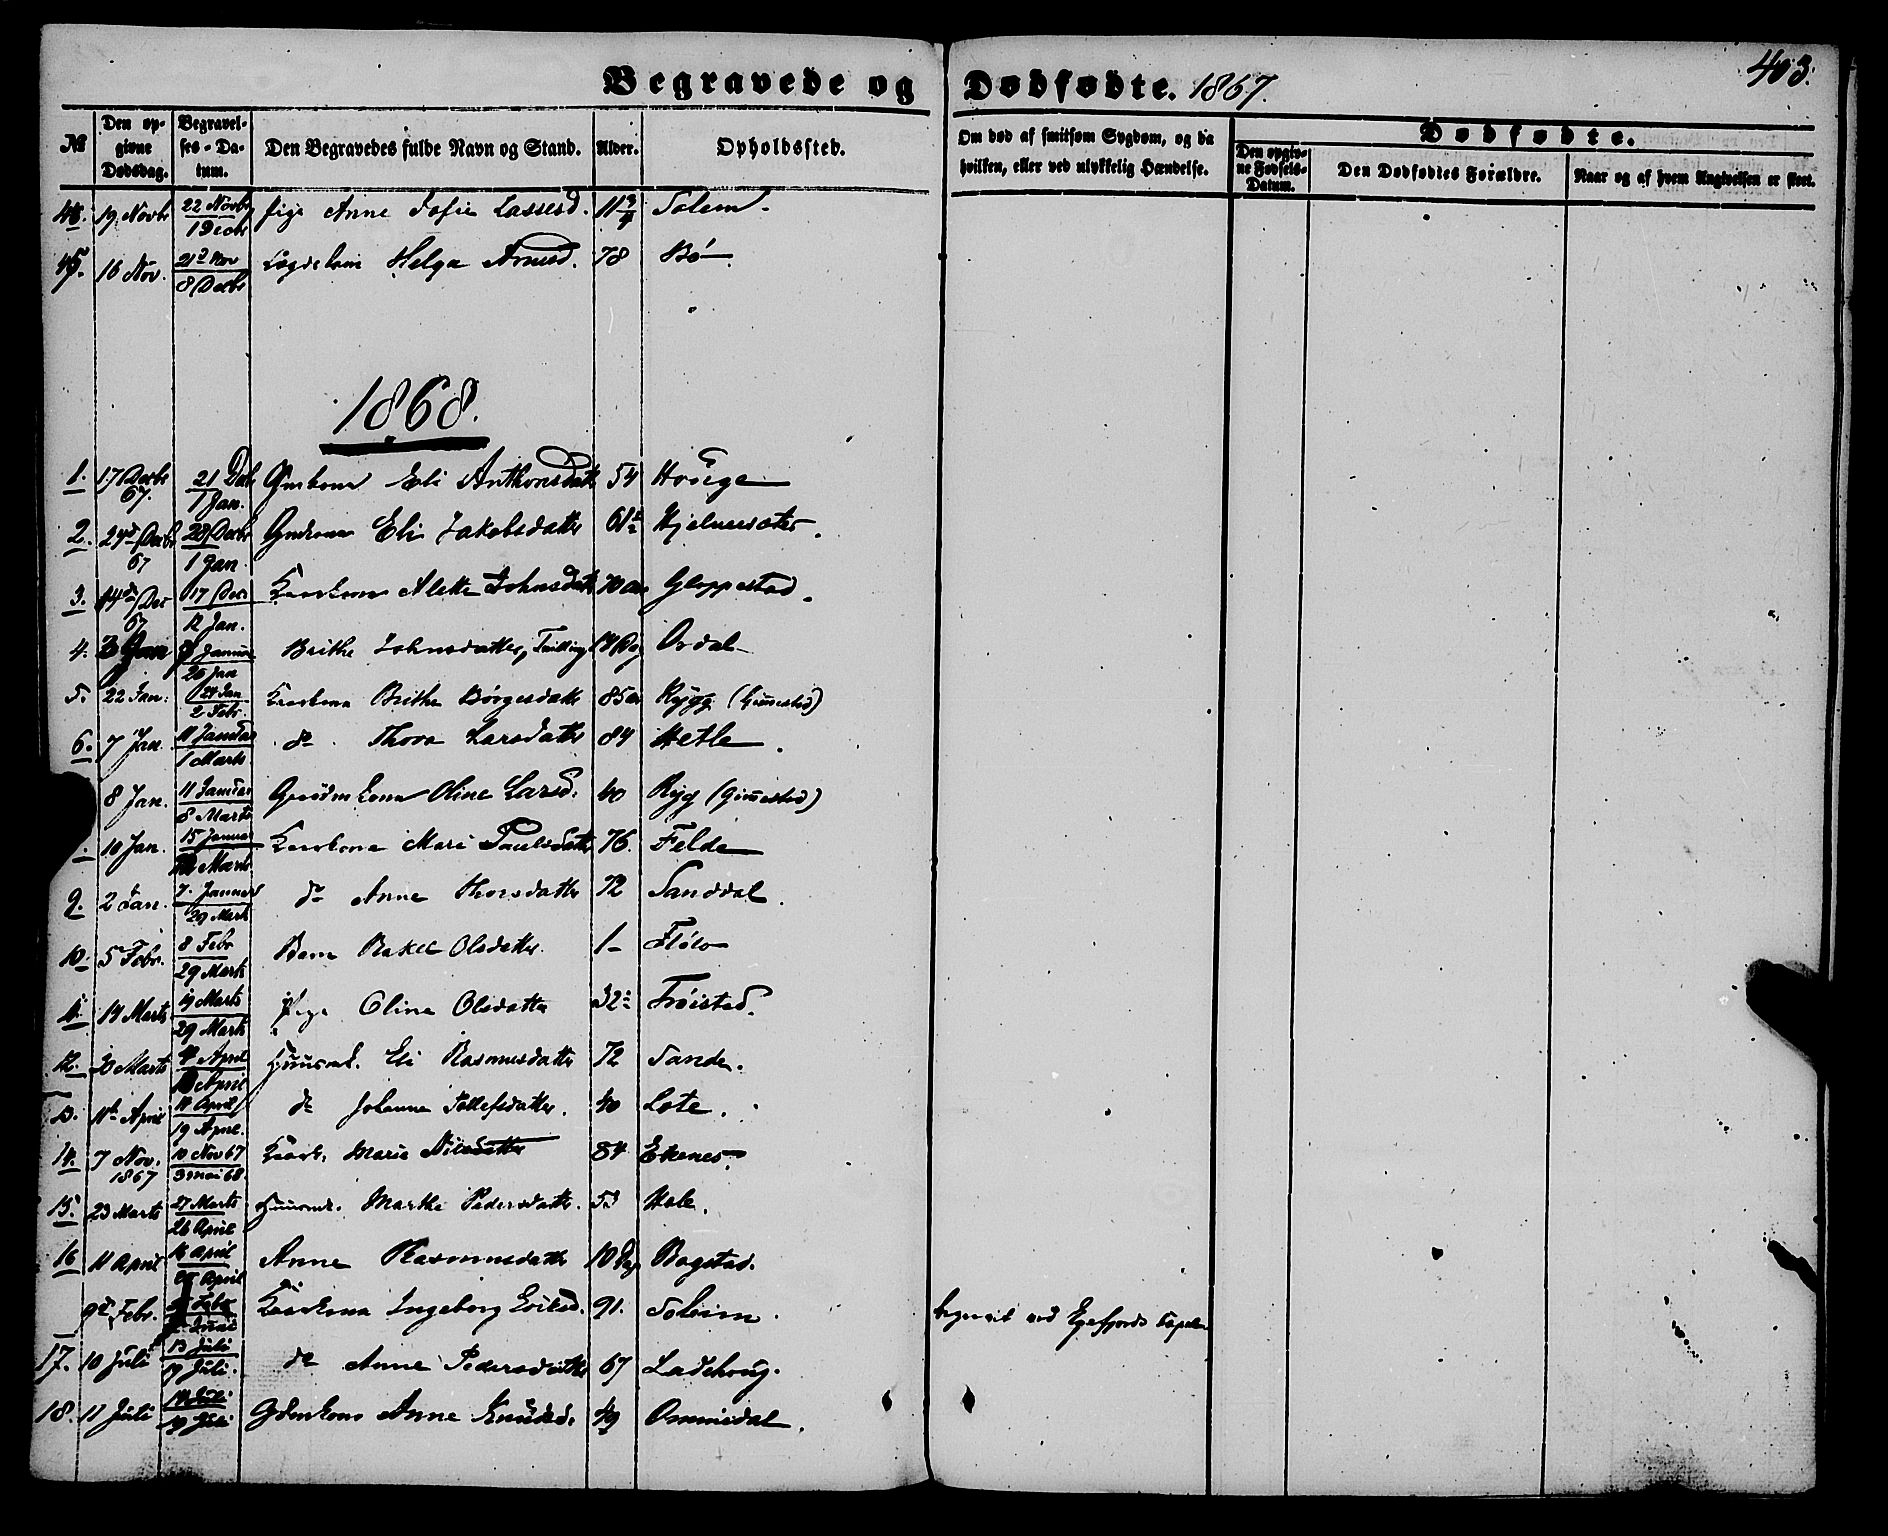 Begravede og Dødfødte. 1867.
403.
No
Den opgivne Dødsdag.
Begravelses-Datum.
Den Begravedes fulde Navn og Stand.
Alder.
Opholdssted.
Om død af smitsom Sygdom, og da hvilken, eller ved ulykkelig Hændelse.
Dødfødte.
Den opgivne Fødsels-Datum.
Den Dødfødtes Forældre.
Naar og af hvem Angivelsen er skeet.
19 Novbr 22 Novbr / 1 Decbr Pige Anne Sofie Lassesd. 11 3/4 Solem.
45. 16 Nov. 21 Nov / 8 Decbr Helga 78 Bø
1868.
1. 17 Decbr 67. 21 Decbr / 1 Jan. Gmkona Eli Anthonsdatter 54 Houge
2. 24 Decbr 67 28 Decbr / 1 Jan. Gmkona Eli Jakobsdatter 61 Hjelmesæter.
3. 14 Dec 67 17 Dec / 12 Jan. Kaarkone Alette Johnsdatter 70 aar Gloppestad.
4. 3 Jan Januar / 26 Jan Brithe Johnsdatter, Tvilling Dag Ordal
5. 22 Jan. 24 Jan / 2 Febr. Kaarkona Brithe Børgesdatter 85 aar Rygg (Gimmestad)
6. 7 Jan. 11 Januar / 1 Marts do Thora Larsdatter 84 Hetle.
8 Jan. 11 Januar / 8 Marts Oline Larsd. 60 Ryg (Gimmestad)
10 Jan. 15 Januar / Marts Kaarkona Mari Paulsdatter 76. Felde
9. 2 Jan. 7. Januar / 29 Marts do Anne Thorsdatter 72 Sanddal.
10. 5 Febr. 8 Febr / 29 Marts Barn Rakel Olsdatter. 1 Flølo
11. 14 Marts 19 Marts / 29 Marts Pige Olina Olsdatter 32 Frøistad.
12. Marts April / April Huusmk. Eli Rasmusdatter 72 Sande.
13. 11 April April / 19 April. do Johanne Tollefsdatter. 40 Lote.
14. 7 Nov. 1867 10 Nov 67 / 3 mai 68. Kaark. Marie Nilsdatter 84 Ekenes.
15. 23 Marts 27 Marts / 26 April Huusmk. Marthe Pedersdatter. 53 Hole.
16 11 April 16 April / April Anne Rasmusdatter 10 Dag Bogstad.
9 Febr. Febr Kaarkona Ingeborg Eriksd. 91. Soleim. begravet ved Hyefjords Capel
17. 10 Juli 13 Juli / 19 Juli. do Anne Pedersdatter 67 Ladehoug.
18. 11 Juli Juli / 19 Juli Gdmkona Anne Knudsd. 49 Ommedal.